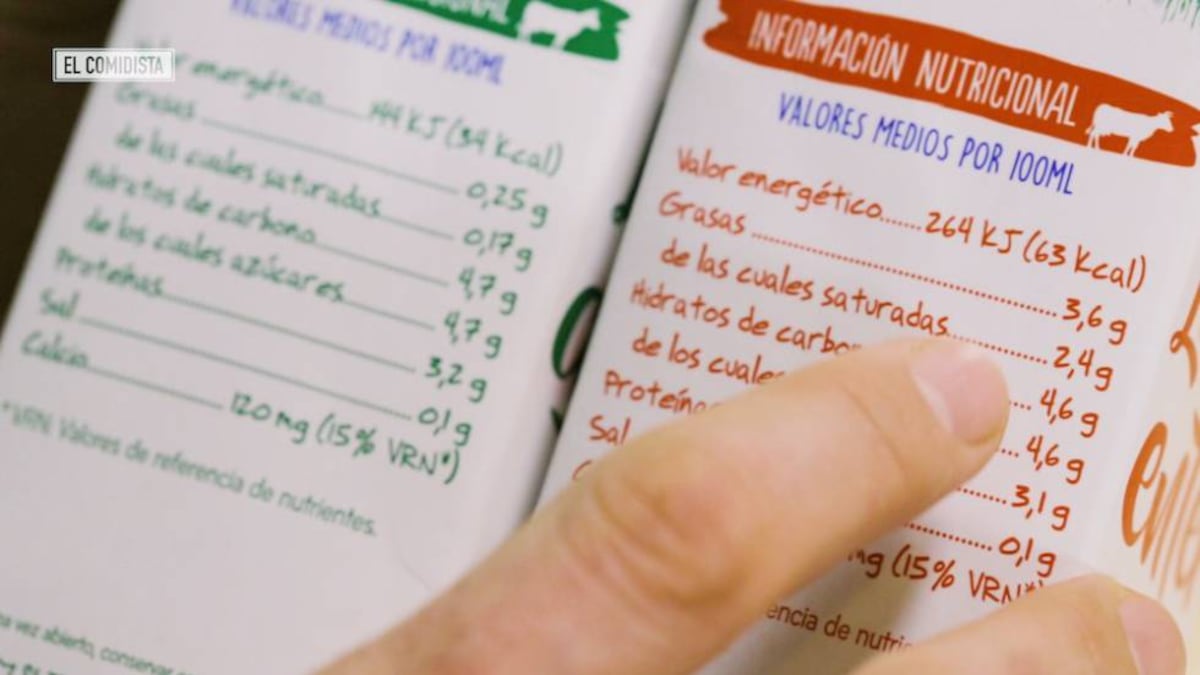 EL COMIDISTA
VALORES MEDIOS POR 100ML
Valor energético 144 KJ (34 Kcal)
Grasas 0,25 g
de las cuales saturadas 0,17 g
Hidratos de carbono 4,7 g
de los cuales azúcares 4,7 g
Proteínas 3,2 g
Sal 0,1 g
Calcio 120 mg (15% VRN*)
*VRN: Valores de referencia de nutrientes.
vez abierto,
INFORMACIÓN NUTRICIONAL
VALORES MEDIOS POR 100ML
Valor energético...... 264 KJ (63 Kcal)
Grasas 3,6 g
de las cuales saturadas 2,4 g
Hidratos de 4,6 g
de los cuales 4,6 g
3,1 g
Sal 0,1 g
mg (15% VRN*)
de